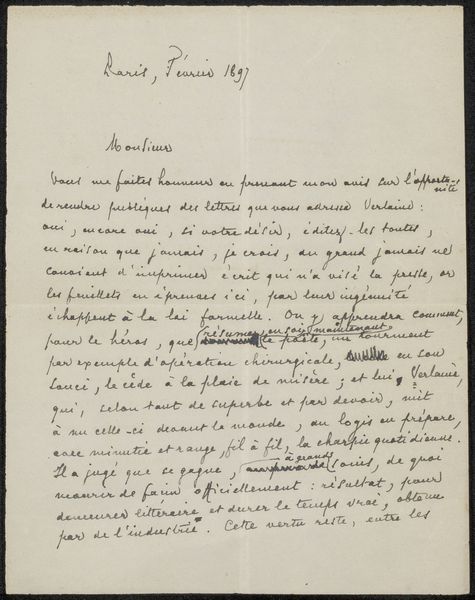 Paris, Février 1897
Monsieur
Vous me faites honneur en prenant mon avis sur l'opportu-
nité
de rendre publiques des lettres que vous adressa Verlaine :
oui, encore oui, si votre désir, éditez-les toutes,
en raison que jamais, je crois, au grand jamais ne
convient d'imprimer écrit qui n'a visé la presse, or
les feuillets en épreuves ici, par leur ingénuité
échappent à la loi formelle. On y apprendra comment,
résumer en soi maintenant
pour le héros, que le poète, un tourment
par exemple d'opération chirurgicale, en son
souci, le cède à la plaie de misère ; et lui, Verlaine,
qui, selon tant de superbe et par devoir, mit
à nu celle-ci devant le monde, au logis en prépare,
avec minutie et range, fil à fil, la charpie quotidienne.
à grands
Il a jugé que se gagne, soins, de quoi
mourir de faim officiellement : résultat, pour
demeurer littéraire et durer le temps vrai, obtenu
par de l'industrie. Cette vertu reste, entre les